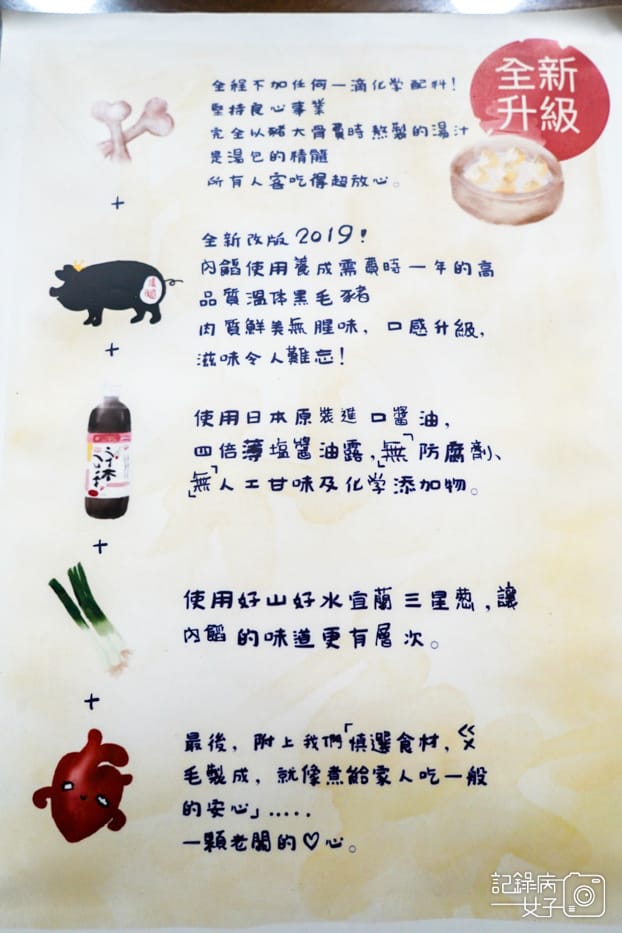 全新
升級
全程不加任何一滴化学配料!
堅持良心事業
完全以豬大骨費時熬製的湯汁
是湯包的精髓
所有人客吃得超放心。
+
全新改版2019!
內餡使用養成需費時一年的高
品質溫体黑毛豬
肉質鮮美無腥味,口感升級,
滋味令人難忘!
+
使用日本原裝進口醬油,
四倍薄塩醬油露,「無」防腐劑、
「無」人工甘味及化学添加物。
+
使用好山好水宜蘭三星葱,讓
內餡的味道更有層次。
+
最後,附上我們「慎選食材,ㄍㄨ
毛製成,就像煮給家人吃一般
的安心」.....
一顆老闆的♡心。
記錄病
女子